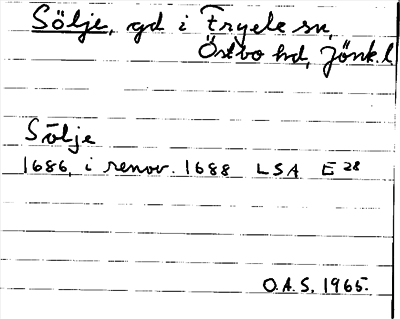 Sölje, gd i Fryele sn,
Östbo hd, Jönk. l
Sölje
1686, i renov. 1688 LSA E 28
O.A.S. 1965.